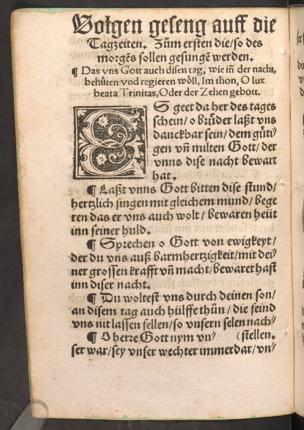 Volgen geseng auff die
Tagzeiten. Zům ersten die/so des
morgēs sollen gesungē werden.
¶ Das vns Gott auch disen tag, wie iñ der nacht,
behüten vnd regieren wöll, Im thon, O lux
beata Trinitas, Oder der Zehen gebott.
ES geet da her des tages
schein/ o brůder laßt vns
danckbar sein/ dem güti
gen vñ milten Gott/ der
vnns dise nacht bewart
hat.
¶ Laßt vnns Gott bitten dise stund/
hertzlich singen mit gleichem mund/ bege
ren das er vns auch wolt/ bewaren heüt
inn seiner huld.
¶ Sprechen o Gott von ewigkeyt/
der du vns auß barmhertzigkeit/ mit dei/
ner grossen krafft vñ macht/ bewaret hast
inn diser nacht.
¶ Du woltest vns durch deinen son/
an disem tag auch hülffe thůn/ die feind
vns nit lassen fellen/ so vnsern selen nach/
¶ O herre Gott nym vn/ (stellen.
ser war/ sey vnser wechter immerdar/ vn/